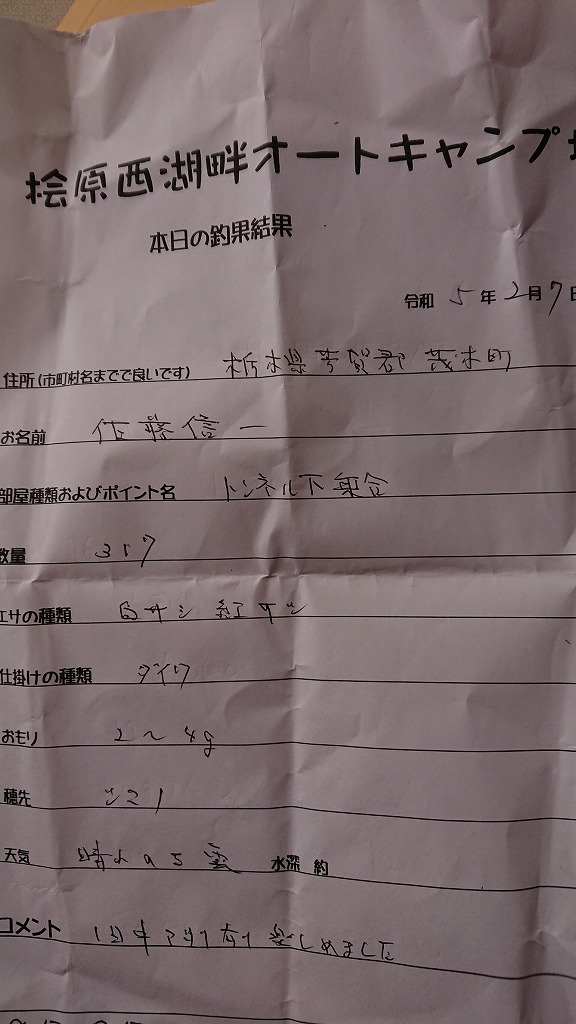 桧原西湖畔オートキャンプ
本日の釣果結果
令和 5年2月7日
住所(市町村名までで良いです) 栃木県芳賀郡茂木町
お名前 佐藤信一
部屋種類およびポイント名 トンネル下乗合
数量 317
エサの種類 白サシ 紅サシ
仕掛けの種類 ダイワ
おもり 2～4g
穂先
天気 晴 水深 約
コメント 1日中 楽しめました